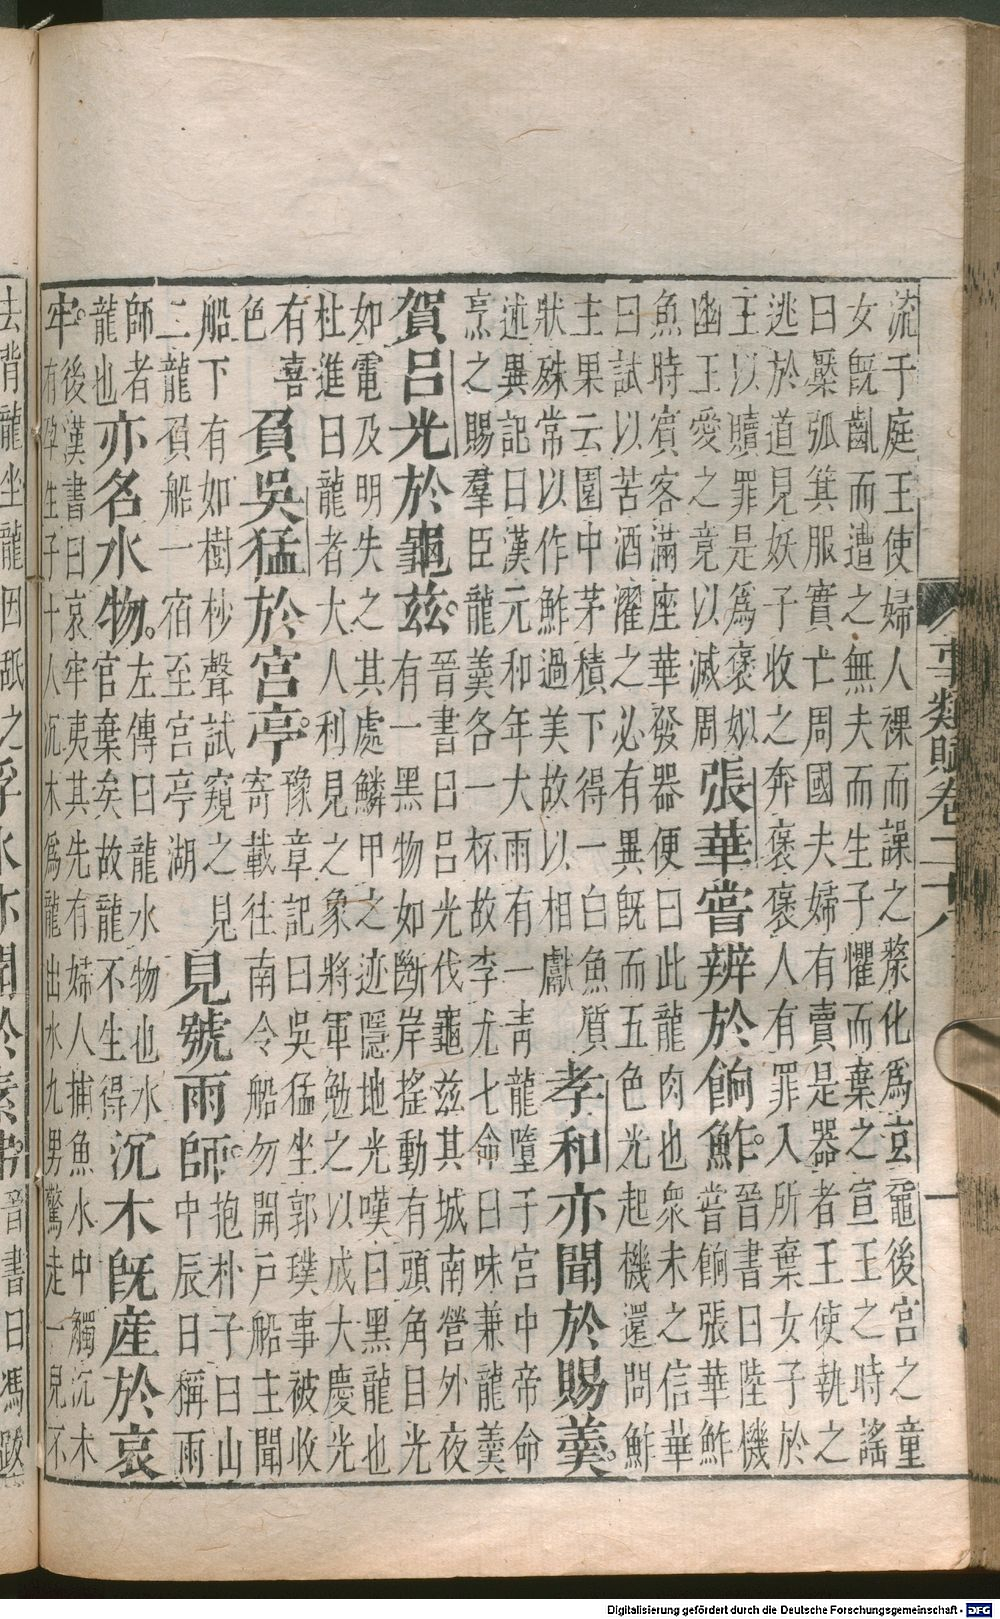 事類賦卷二十八
一
流于庭王使婦人裸而譟之漦化爲玄黿後宮之童
女既齔而遭之無夫而生子懼而棄之宣王之時謠
曰檿弧箕服實亡周國夫婦有賣是器者王使執之
逃於道見妖子收之奔褒褒人有罪入所棄女子於
王以贖罪是爲褒姒
幽王愛之竟以滅周
張華嘗辨於餉鮓。
晉書曰陸機
嘗餉張華鮓
魚時賓客滿座華發器便曰此龍肉也衆未之信華
曰試以苦酒濯之必有異既而五色光起機還問鮓
主果云園中茅積下得一白魚質
狀殊常以作鮓過美故以相獻
孝和亦聞於賜羹。
述異記曰漢元和年大雨有一青龍墮于宮中帝命
烹之賜羣臣龍羹各一杯故李尤七命曰味兼龍羹
賀呂光於龜兹。
晉書曰呂光伐龜兹其城南營外夜
有一黑物如斷岸搖動有頭角目光
如電及明失之其處鱗甲之迹隱地光嘆曰黑龍也
杜進曰龍者大人利見之象將軍勉之以成大慶光
有喜
色
負吳猛於宮亭。
豫章記曰吳猛坐郭璞事被收
寄載往南令船勿開戶船主聞
船下有如樹杪聲試窺之見
二龍負船一宿至宮亭湖
見號雨師。
抱朴子曰山
中辰日稱雨
師者
龍也
亦名水物。
左傳曰龍水物也水
官棄矣故龍不生得
沉木既産於哀
牢。
後漢書曰哀牢夷其先有婦人捕魚水中觸沉木
有孕生子十人沉木爲龍出水九男驚走一兒不
去背龍坐龍因舐之
晉書曰馮跋
Digitalisierung gefördert durch die Deutsche Forschungsgemeinschaft - DFG